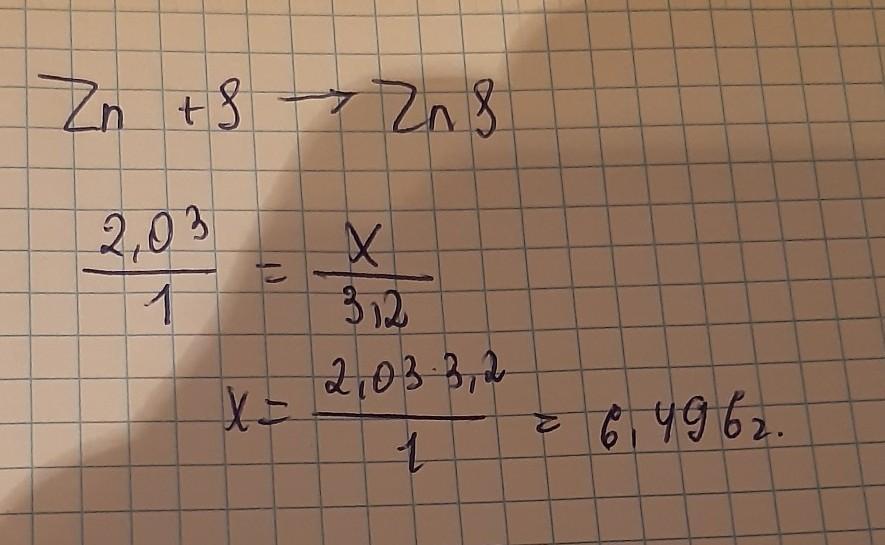 Zn + S → ZnS
2,03/1 = X/3,2
X = 2,03·3,2/1 = 6,496г.